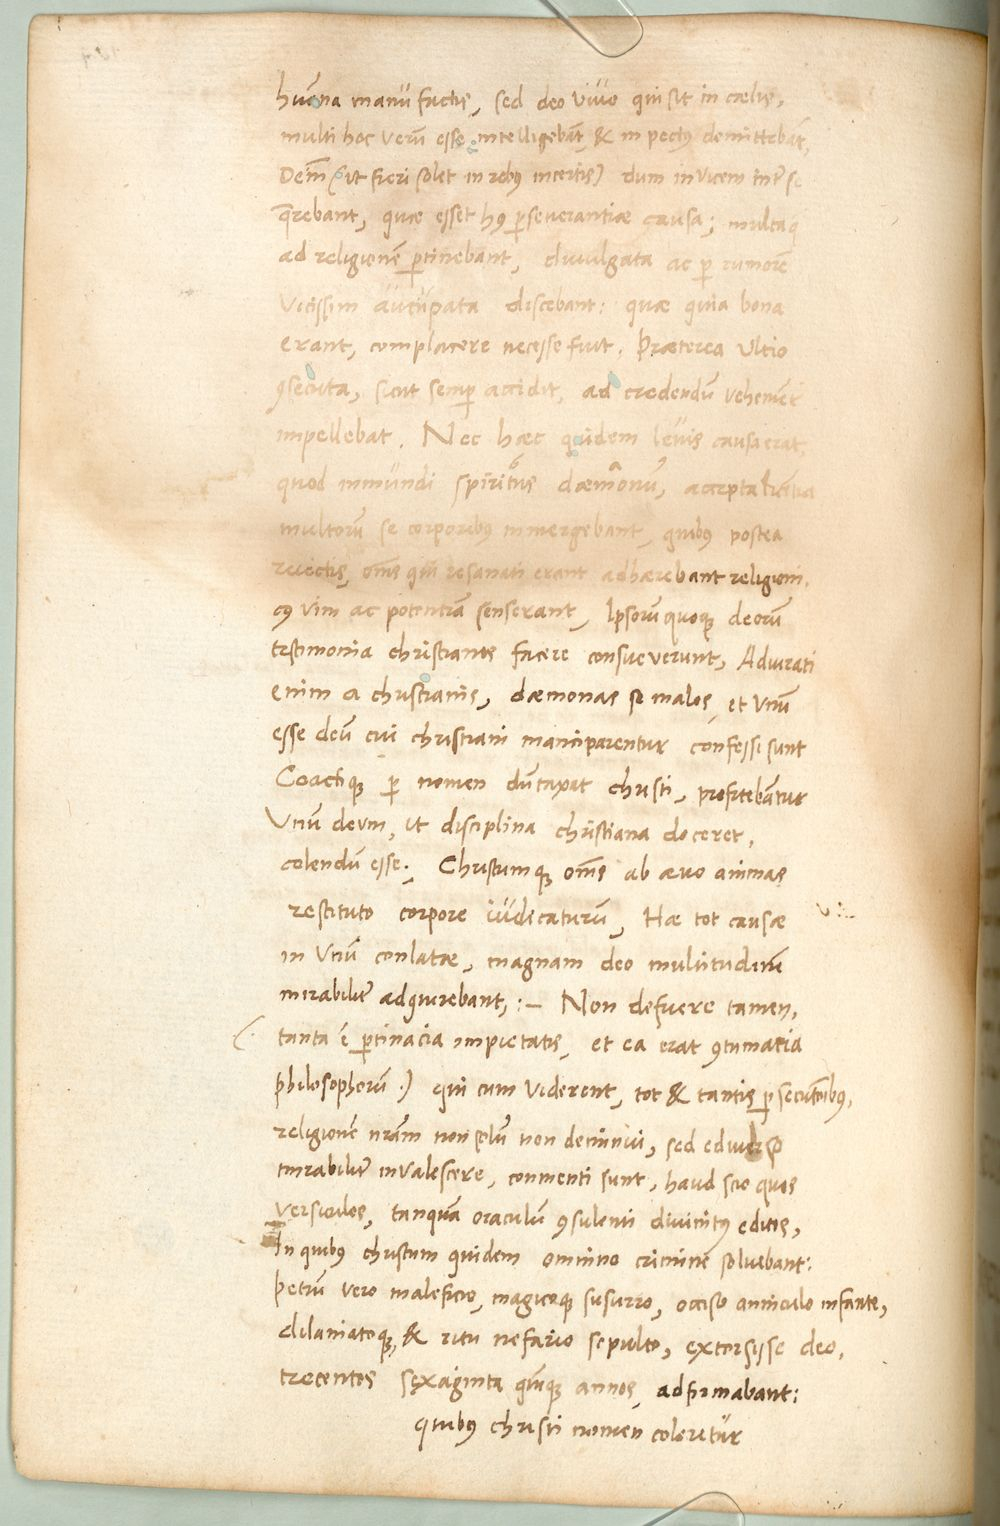 humana manu factis, sed deo vivo qui sit in cælis,
multi hoc verũ esse intelligebãt, & in pectꝰ demittebãt,
Deinde (ut fieri solet in rebꝰ incertis) dum invicem inter se
q̃rebant, quæ esset hꝰ ꝑseverantiæ causa; multaq
ad religionẽ ꝑtinebant, divulgata ac ꝑ rumorẽ
vicissim aucupata discebant: quæ quia bona
erant, complacere necesse fuit. Præterea ultio
ꝯsecuta, sicut semꝑ accidit, ad credendũ vehemẽt
impellebat. Nec hæc quidem levis causa erat,
quod immundi spiritus dæmonũ, accepta licentia
multorũ se corporibꝰ immergebant, quibꝰ postea
reiectis, oẽs qui resanati erant adhærebant religioni.
cꝰ vim ac potentiã senserant, Ipsorũ quoqꝫ deorũ
testimonia christianos facere consueverunt, Adiurati
enim a christianis, dæmonas se malos, et unũ
esse deũ cui christiani manciparentur confessi sunt
Coactiqꝫ ꝑ nomen dũtaxat christi, profitebãtur
Unũ deum, ut disciplina christiana doceret,
colendũ esse; Christumqꝫ oẽs ab ævo animas
restituto corpore iudicaturũ, Hæ tot causæ
in unũ conlatæ, magnam deo multitudinẽ
mirabilit̃ adquirebant,:– Non defuere tamen,
(· tanta ẽ ꝑtinacia impietatis, et ea erat ꝯtumatia
philosophorũ ·) qui cum viderent, tot & tantis ꝑsecutiõibꝰ,
religionẽ nr̃am non solũ non deminui, sed ediverso
mirabilit̃ invalescere, conmenti sunt, haud scio quos
versiculos, tanquã oraculũ ꝯsulenti divinitꝰ editos,
In quibꝰ christum quidem omnino criminẽ solvebant:
petrũ vero maleficio, magicoqꝫ susurro, occiso anniculo infante,
dilaniatoqꝫ, & ritu nefario sepulto, extorsisse deo,
trecentos sexaginta quinqꝫ annos, adfirmabant:
quibꝰ christi nomen coleretur